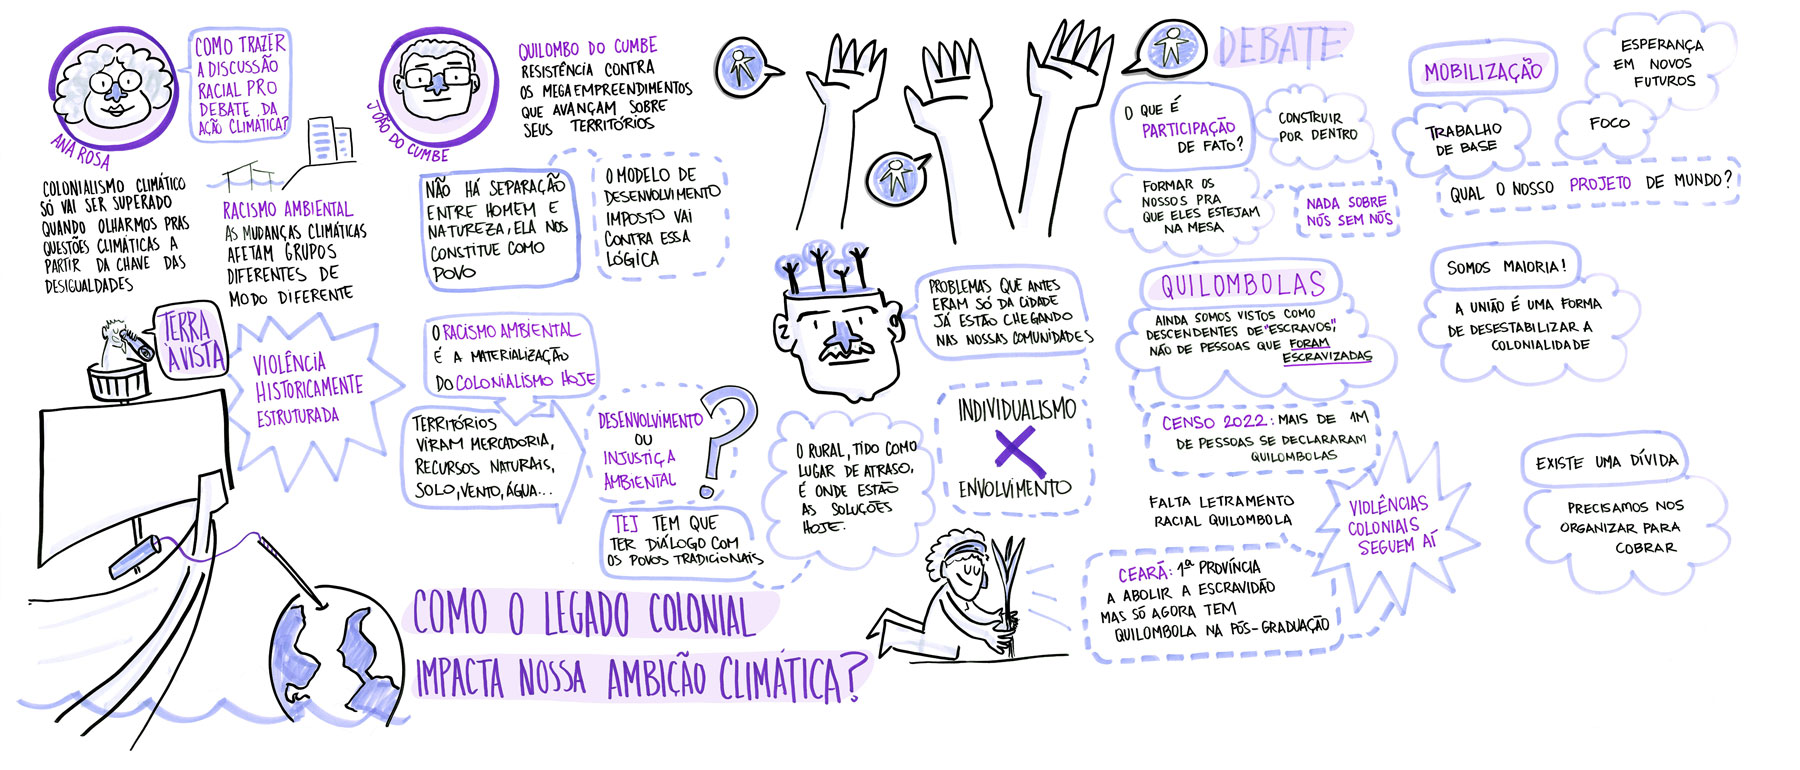 COMO TRAZER
A DISCUSSÃO
RACIAL PRO
DEBATE DA
AÇÃO CLIMÁTICA?
ANA ROSA
COLONIALISMO CLIMÁTICO
SÓ VAI SER SUPERADO
QUANDO OLHARMOS PRAS
QUESTÕES CLIMÁTICAS A
PARTIR DA CHAVE DAS
DESIGUALDADES
RACISMO AMBIENTAL
AS MUDANÇAS CLIMÁTICAS
AFETAM GRUPOS
DIFERENTES DE
MODO DIFERENTE
TERRA
À VISTA
VIOLÊNCIA
HISTORICAMENTE
ESTRUTURADA
JOÃO DO CUMBE
QUILOMBO DO CUMBE
RESISTÊNCIA CONTRA
OS MEGAEMPREENDIMENTOS
QUE AVANÇAM SOBRE
SEUS TERRITÓRIOS
NÃO HÁ SEPARAÇÃO
ENTRE HOMEM E
NATUREZA, ELA NOS
CONSTITUE COMO
POVO
O MODELO DE
DESENVOLVIMENTO
IMPOSTO VAI
CONTRA ESSA
LÓGICA
O RACISMO AMBIENTAL
É A MATERIALIZAÇÃO
DO COLONIALISMO HOJE
TERRITÓRIOS
VIRAM MERCADORIA,
RECURSOS NATURAIS,
SOLO, VENTO, ÁGUA...
DESENVOLVIMENTO
OU
INJUSTIÇA
AMBIENTAL
?
TEJ TEM QUE
TER DIÁLOGO COM
OS POVOS TRADICIONAIS
COMO O LEGADO COLONIAL
IMPACTA NOSSA AMBIÇÃO CLIMÁTICA?
PROBLEMAS QUE ANTES
ERAM SÓ DA CIDADE
JÁ ESTÃO CHEGANDO
NAS NOSSAS COMUNIDADES
O RURAL, TIDO COMO
LUGAR DE ATRASO,
É ONDE ESTÃO
AS SOLUÇÕES
HOJE.
INDIVIDUALISMO
X
ENVOLVIMENTO
DEBATE
O QUE É
PARTICIPAÇÃO
DE FATO?
CONSTRUIR
POR DENTRO
FORMAR OS
NOSSOS PRA
QUE ELES ESTEJAM
NA MESA
NADA SOBRE
NÓS SEM NÓS
QUILOMBOLAS
AINDA SOMOS VISTOS COMO
DESCENDENTES DE "ESCRAVOS",
NÃO DE PESSOAS QUE FORAM
ESCRAVIZADAS
CENSO 2022: MAIS DE 1M
DE PESSOAS SE DECLARARAM
QUILOMBOLAS
FALTA LETRAMENTO
RACIAL QUILOMBOLA
VIOLÊNCIAS
COLONIAIS
SEGUEM AÍ
CEARÁ: 1ª PROVÍNCIA
A ABOLIR A ESCRAVIDÃO
MAS SÓ AGORA TEM
QUILOMBOLA NA PÓS-GRADUAÇÃO
MOBILIZAÇÃO
ESPERANÇA
EM NOVOS
FUTUROS
TRABALHO
DE BASE
FOCO
QUAL O NOSSO PROJETO DE MUNDO?
SOMOS MAIORIA!
A UNIÃO É UMA FORMA
DE DESESTABILIZAR A
COLONIALIDADE
EXISTE UMA DÍVIDA
PRECISAMOS NOS
ORGANIZAR PARA
COBRAR